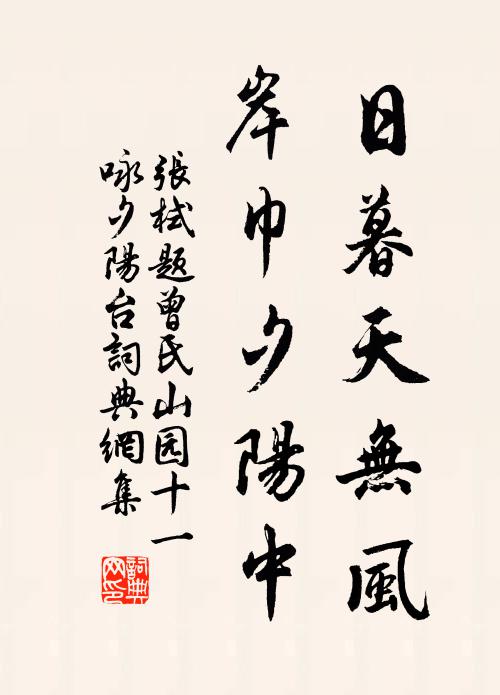 日暮天無風
岸巾夕陽中
張栻題曾氏山园十一
咏夕陽台詞典網集
詞典
网印